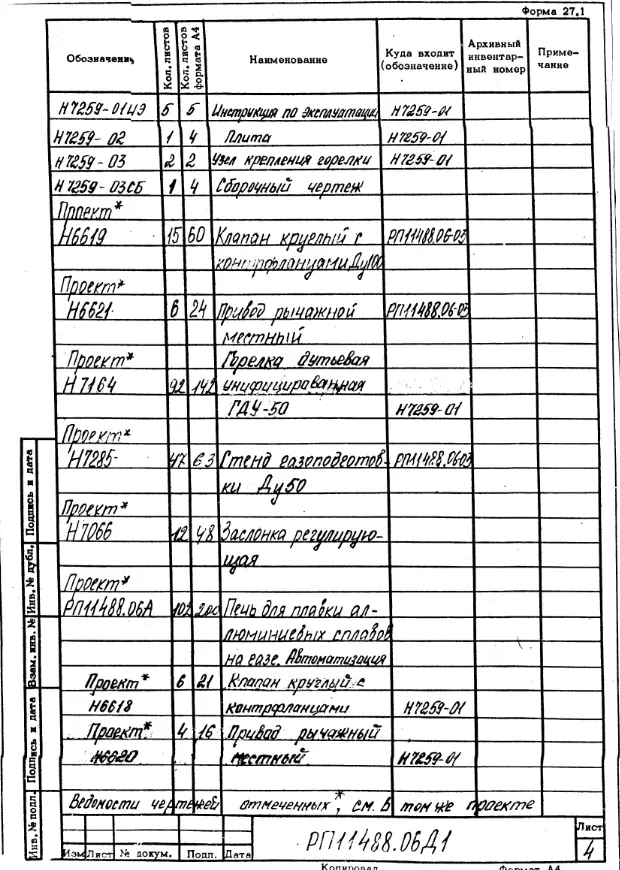 Форма 27.1
Обозначение Кол. листов Кол. листов формата А4 Наименование Куда входит (обозначение) Архивный инвентар- ный номер Приме- чание
Н7259-01ИЭ 5 5 Инструкция по эксплуатации Н7259-01
Н7259-02 1 4 Плита Н7259-01
Н7259-03 2 2 Узел крепления горелки Н7259-01
Н7259-03СБ 1 4 Сборочный чертеж
Проект*
Н6619 15 60 Клапан круглый с РП11488.06-03
контрфланцами Ду100
Проект*
Н6621 6 24 Привод рычажной РП11488.06-03
местный
Проект* Горелка дутьевая
Н7164 92 142 унифицированная
ГДУ-50 Н7259-01
Проект*
Н7285 47 63 Стенд газоподготов- РП11488.06-03
ки Ду50
Проект*
Н7066 12 48 Заслонка регулирую-
щая
Проект*
РП11488.06А 102 200 Печь для плавки ал-
люминиевых сплавов
на газе. Автоматизация
Проект* 6 21 Клапан круглый с
Н6618 контрфланцами Н7259-01
Проект* 4 16 Привод рычажный
Н6620 местный Н7259-01
Ведомости чертежей отмеченных*, см. в том же проекте
Инв. № подл. Подпись и дата Взам. инв. № Инв. № дубл. Подпись и дата
РП11488.06Д1
Лист
4
Изм Лист № докум. Подп. Дата
Копировал Формат А4